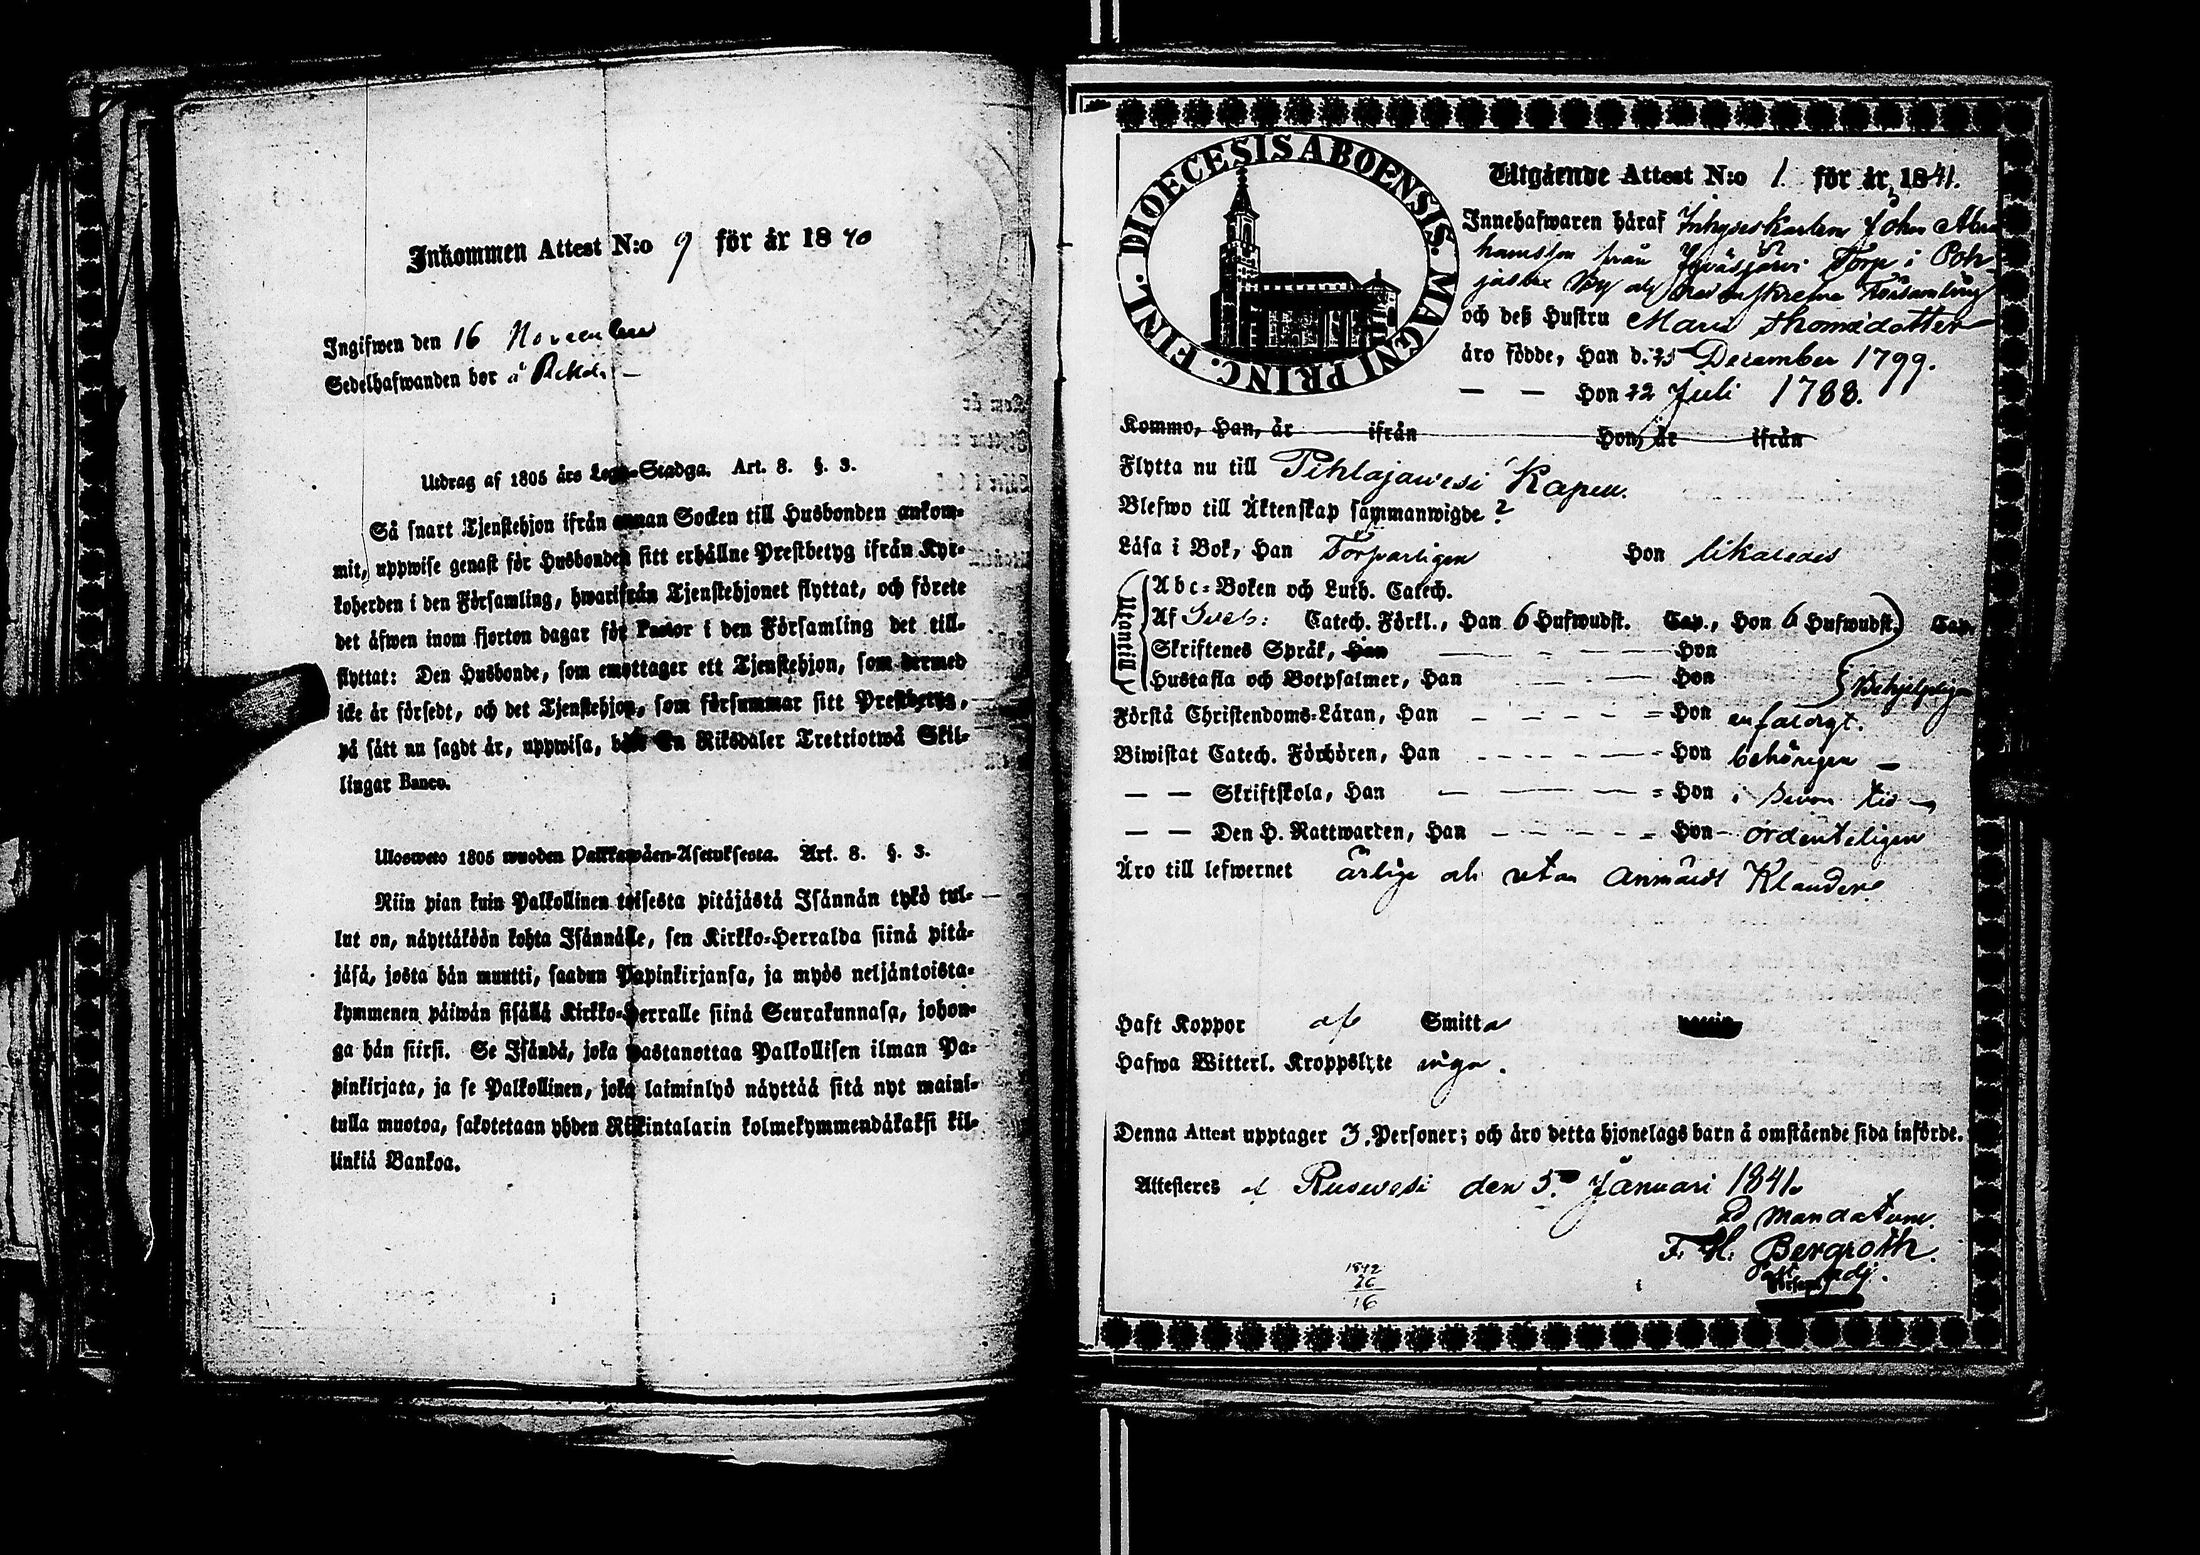 Inkommen Attest N:o 9 för år 1840
Ingifwen den 16 November
Sedelhafwanden bor å
Utdrag af 1805 års Lego-Stadga. Art. 8. §. 3.
Så snart Tjenstehjon ifrån annan Socken till Husbonden ankom-
mit, uppwise genast för Husbonden sitt erhållne Prestbetyg ifrån Kyr-
koherden i den Församling, hwarifrån Tjenstehjonet flyttat, och förete
det åfwen inom fjorton dagar för Pastor i den Församling det till-
flyttat: Den Husbonde, som emottager ett Tjenstehjon, som dermed
icke år försedt, och det Tjenstehjon, som försummar sitt Prestbetyg,
på sått nu sagdt år, uppwisa, böte En Riksdaler Trettiotwå Skil-
lingar Banco.
Ulosweto 1805 wuoden Palkkawäen-Asetuksesta. Art. 8. §. 3.
Niin pian kuin Palkollinen toisesta pitäjästä Isännän tykö tul-
lut on, näyttäköön kohta Isännälle, sen Kirkko-Herralda siinä pitä-
jäsä, josta hän muutti, saadun Papinkirjansa, ja myös neljäntoista-
kymmenen päiwän sisällä Kirkko-Herralle siinä Seurakunnasa, johon-
ga hän siirsi. Se Isändä, joka wastanottaa Palkollisen ilman Pa-
pinkirjata, ja se Palkollinen, joka laiminlyö näyttää sitä nyt maini-
tulla muotoa, sakotetaan yhden Riikintalarin kolmekymmendäkaksi kil-
linkiä Bankoa.
DIOECESIS ABOENSIS. MAGNI PRINC. FINL.
Utgående Attest N:o 1. för år 1841.
Innehafwaren häraf Inhyseskarlen Johan Abra
hamsson från Jyväsjärvi Torp i Poh-
jasbex By
och deß Hustru Maria Thomædotter
äro födde, Han d. 25 December 1799.
— — Hon 22 Juli 1788.
Kommo, Han, år ifrån Hon, år ifrån
Flytta nu till Pihlajawesi Kapell.
Blefwo till Äktenskap sammanwigde ?
Läsa i Bok, Han Försvarligen Hon likaledes
Utantill
Abc-Boken och Luth. Catech.
Af Sveb: Catech. Förkl., Han 6 Hufwudst. Cap., Hon 6 Hufwudst. Cap.
Skriftenes Språk, Han — — — Hon
Hustafla och Botpsalmer, Han — — — Hon Behjelpligen
Förstå Christendoms-Läran, Han — — — Hon enfaldigt.
Biwistat Catech. Förhören, Han — — — Hon behörigen —
— — Skriftskola, Han — — — Hon i sin tid
— — Den H. Nattwarden, Han — — — Hon ordenteligen
Äro till lefwernet ärlige och utan anmärkt Klander.
Haft Koppor af Smitta
Hafwa Witterl. Kroppslyte inga.
Denna Attest upptager 3. Personer; och äro detta hjonelags barn å omstående sida införde.
Attesteres af Ruowesi den 5. Januari 1841.
Ad mandatum.
F. H. Bergroth.
Past. adj.
1842
26
16